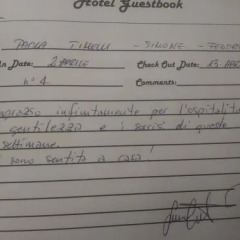 Hotel Guestbook
PAOLA TINELLI - SIMONE - FEDER
In Date: 2 APRILE Check Out Date: 13 APR
n° 4 Comments:
infinitamente per l'ospitalit
gentilezza e i sorrisi di queste
settimane.
i sono sentito a casa!